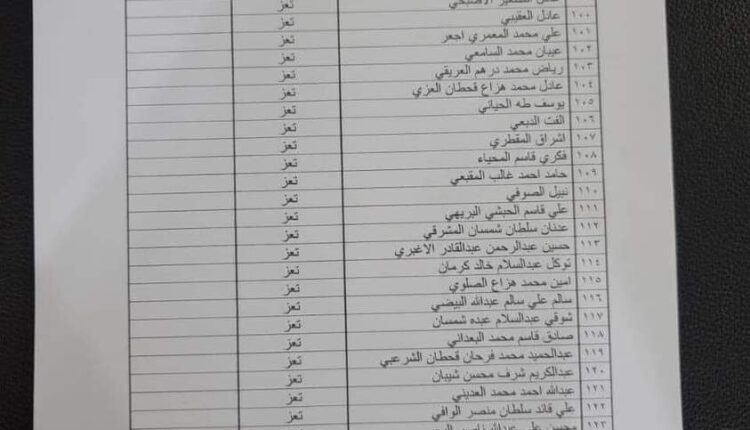 الصغير الاصبحي تعز
١٠٠ عادل العقيبي تعز
١٠١ علي محمد المعمري اجعر تعز
١٠٢ عيبان محمد السامعي تعز
١٠٣ رياض محمد درهم العريقي تعز
١٠٤ عادل محمد هزاع قحطان العزي تعز
١٠٥ يوسف طه الحياني تعز
١٠٦ الفت الدبعي تعز
١٠٧ اشراق المقطري تعز
١٠٨ فكري قاسم المحياء تعز
١٠٩ حامد احمد غالب المقبعي تعز
١١٠ نبيل الصوفي تعز
١١١ علي قاسم الحبشي البريهي تعز
١١٢ عدنان سلطان شمسان المشرقي تعز
١١٣ حسين عبدالرحمن عبدالقادر الاغبري تعز
١١٤ توكل عبدالسلام خالد كرمان تعز
١١٥ امين محمد هزاع الصلوي تعز
١١٦ سالم علي سالم عبدالله البيضي تعز
١١٧ شوقي عبدالسلام عبده شمسان تعز
١١٨ صادق قاسم محمد البعداني تعز
١١٩ عبدالحميد محمد فرحان قحطان الشرعبي تعز
١٢٠ عبدالكريم شرف محسن شيبان تعز
١٢١ عبدالله احمد محمد العديني تعز
١٢٢ علي قائد سلطان منصر الوافي تعز
١٢٣ محسن علي عبدالله